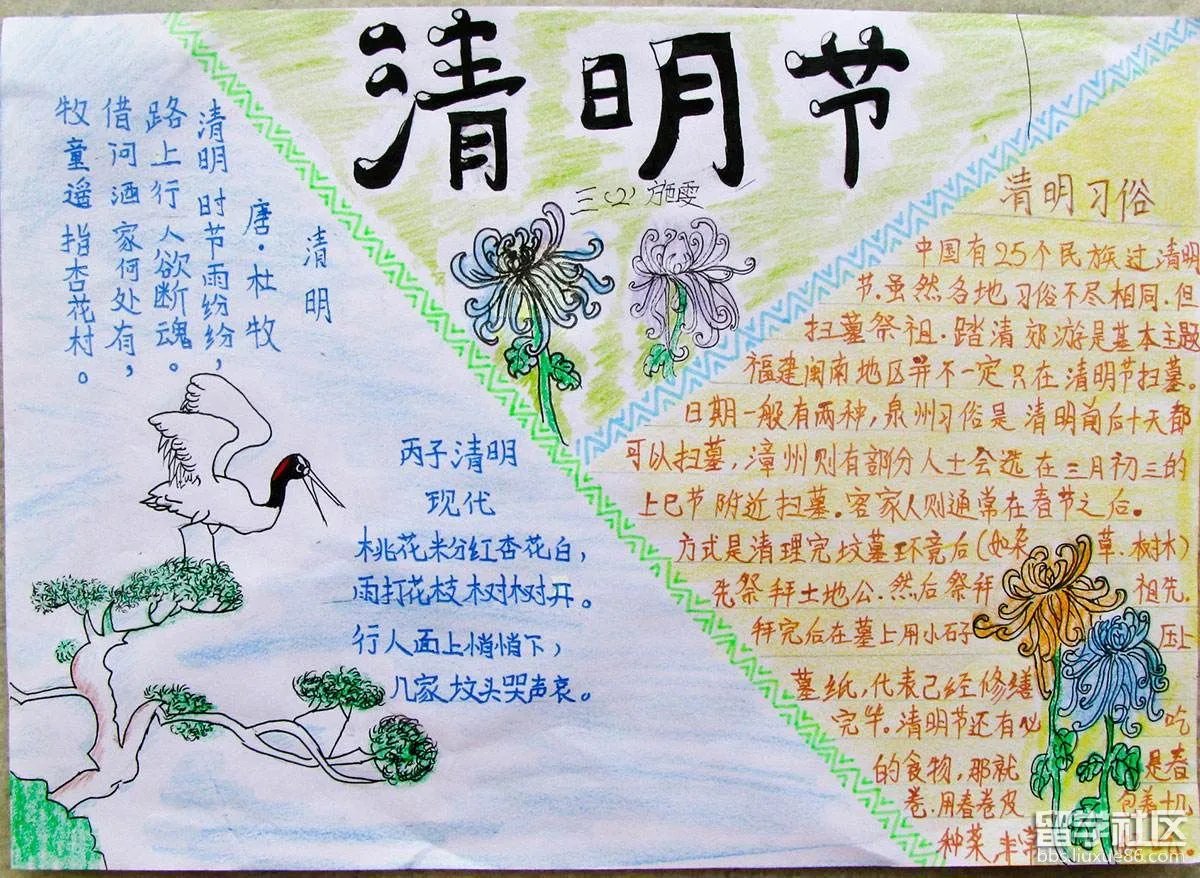 清明节
三(2) 施雯
清明
唐·杜牧
清明时节雨纷纷，
路上行人欲断魂。
借问酒家何处有，
牧童遥指杏花村。
丙子清明
现代
桃花粉红杏花白，
雨打花枝树树开。
行人面上悄悄下，
几家坟头哭声哀。
清明习俗
中国有25个民族过清明
节.虽然各地习俗不尽相同.但
扫墓祭祖.踏清郊游是基本主题
福建闽南地区并不一定只在清明节扫墓.
日期一般有两种，泉州习俗是清明前后十天都
可以扫墓，漳州则有部分人士会选在三月初三的
上巳节附近扫墓。客家人则通常在春节之后。
方式是清理完坟墓环境后(如杂草.树木)
先祭拜土地公.然后祭拜祖先.
拜完后在墓上用小石子压上
墓纸，代表己经修缮
完毕。清明节还有必吃
的食物，那就是春
卷.用春卷皮包着十几
种菜
留学社区
bbs.liuxue86.com